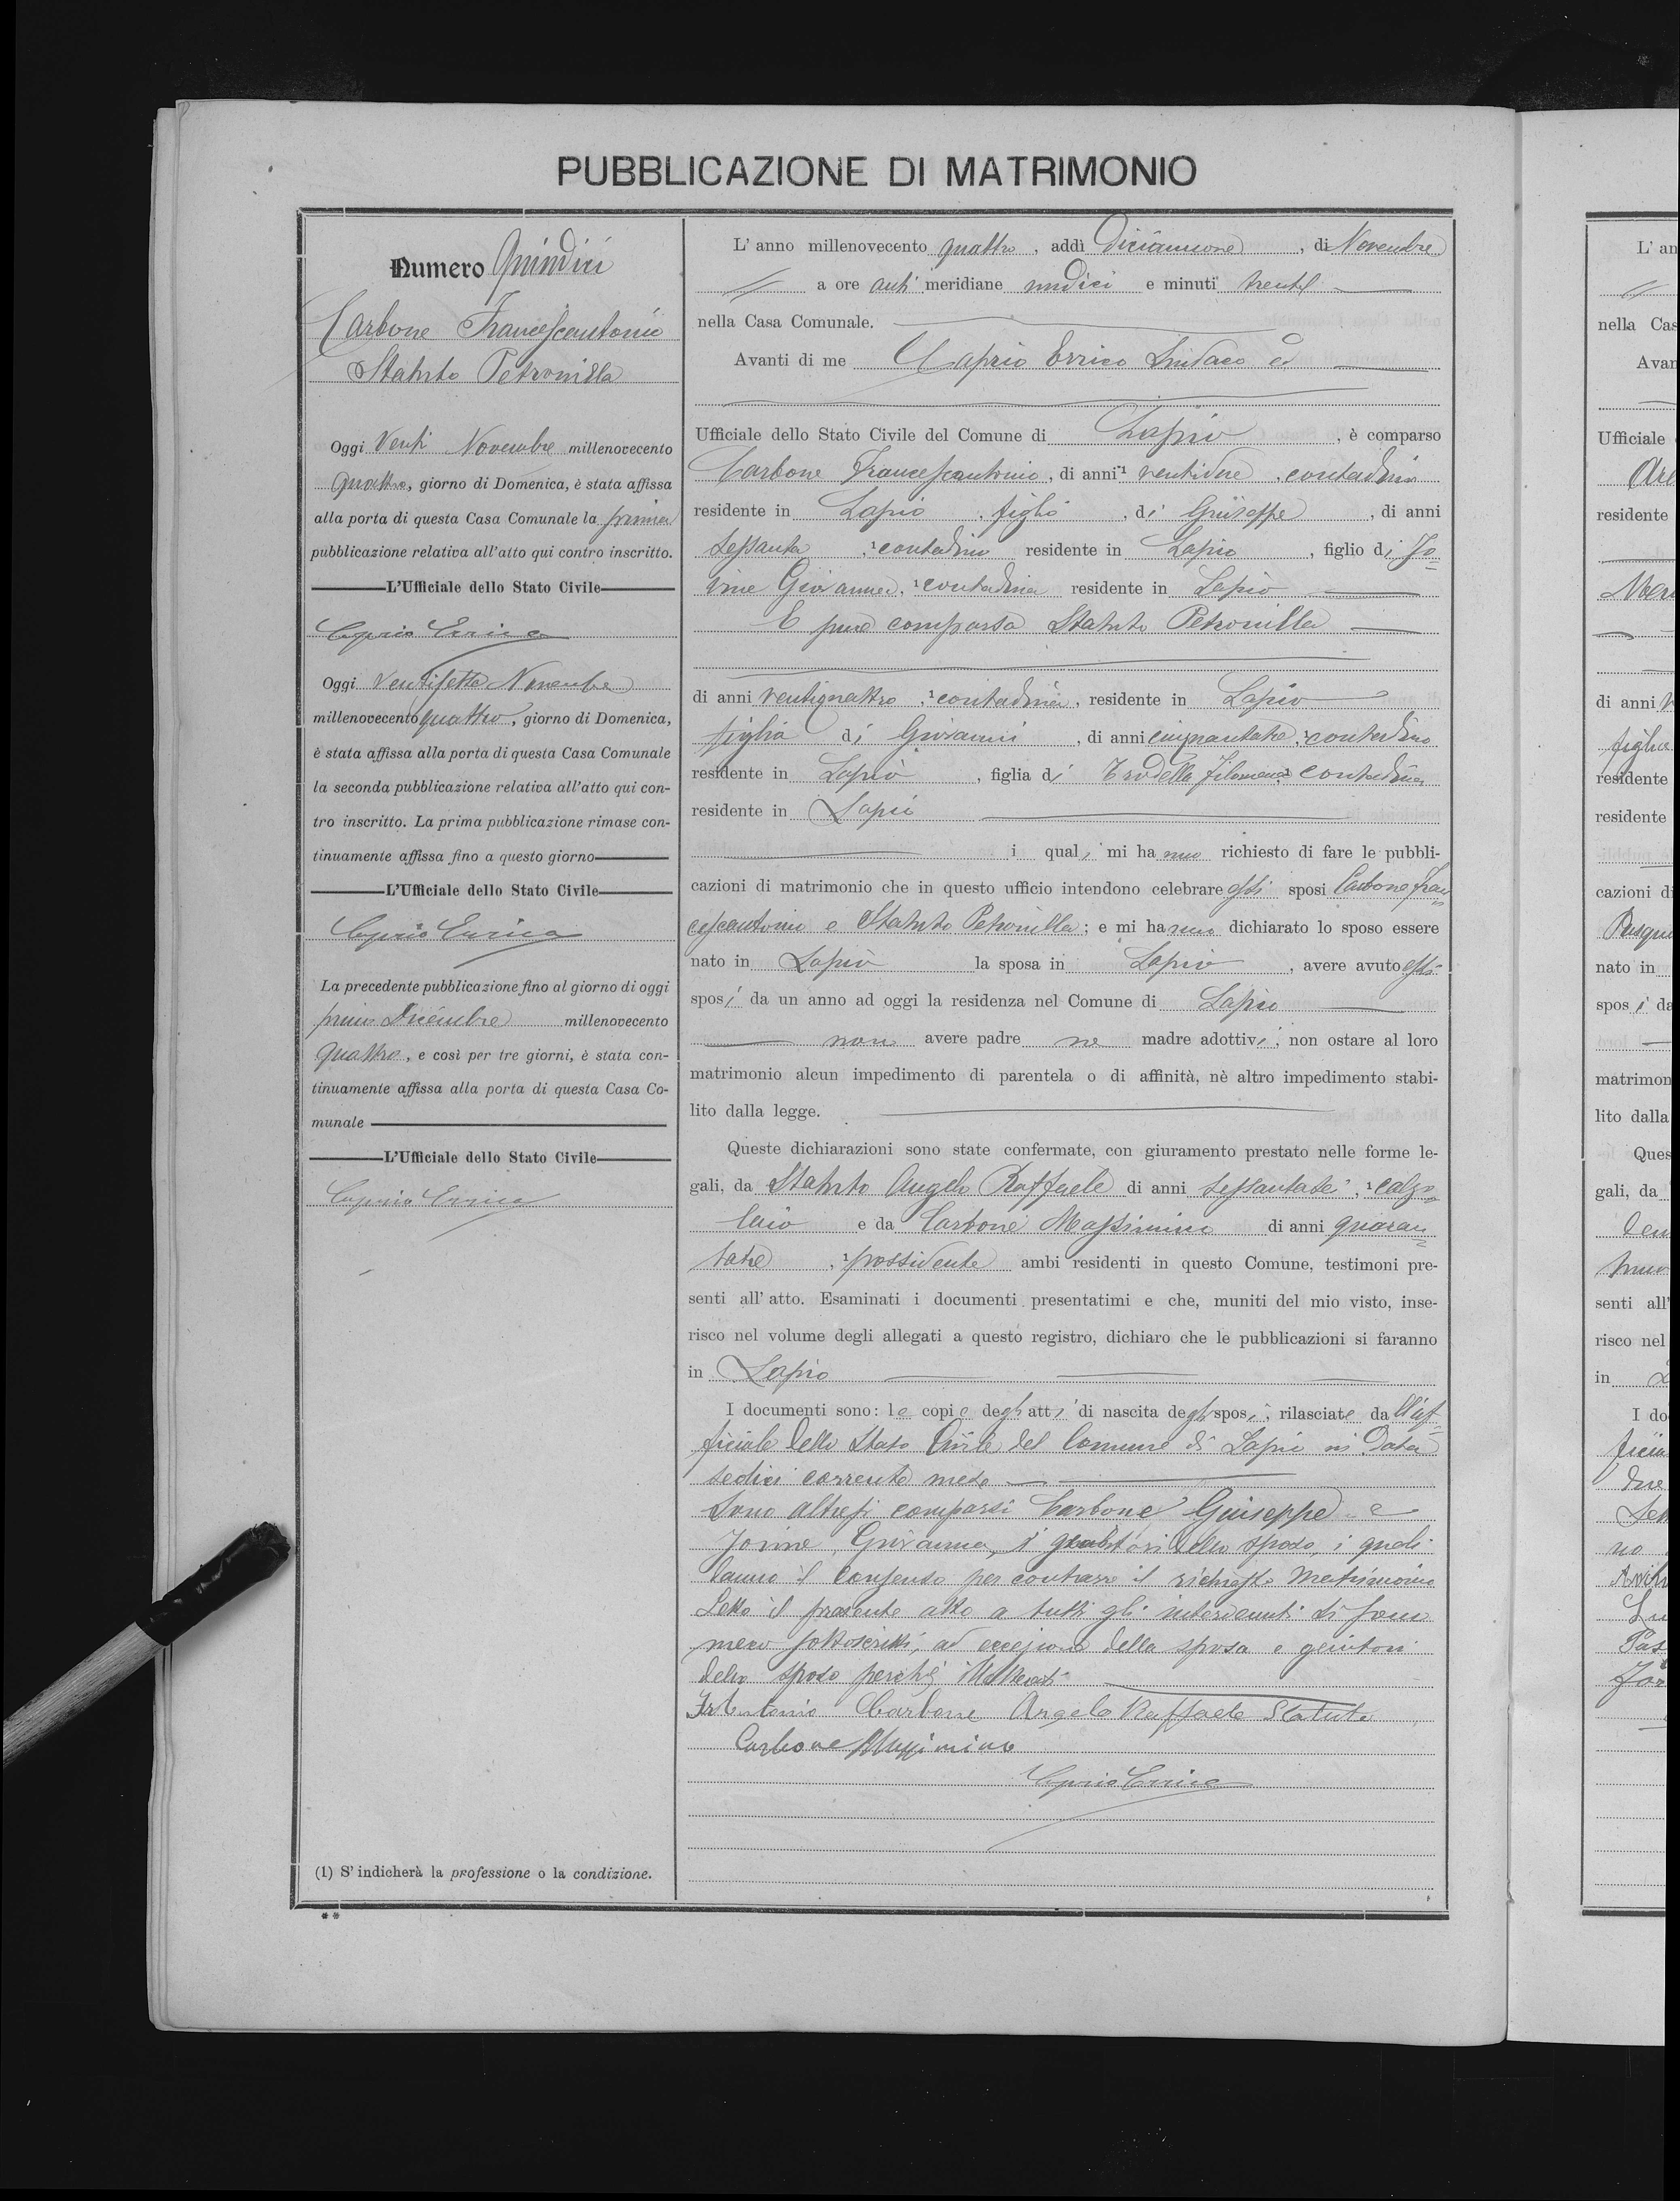 PUBBLICAZIONE DI MATRIMONIO
Numero Quindici
Carbone Francescantonio
Statuto Petronilla
Oggi Venti Novembre millenovecento
quattro, giorno di Domenica, è stata affissa
alla porta di questa Casa Comunale la prima
pubblicazione relativa all'atto qui contro inscritto.
L'Ufficiale dello Stato Civile
Caprio Errico
Oggi Ventisette Novembre
millenovecento quattro, giorno di Domenica,
è stata affissa alla porta di questa Casa Comunale
la seconda pubblicazione relativa all'atto qui con-
tro inscritto. La prima pubblicazione rimase con-
tinuamente affissa fino a questo giorno
L'Ufficiale dello Stato Civile
Caprio Errico
La precedente pubblicazione fino al giorno di oggi
primo Dicembre millenovecento
quattro, e così per tre giorni, è stata con-
tinuamente affissa alla porta di questa Casa Co-
munale
L'Ufficiale dello Stato Civile
Caprio Errico
(1) S'indicherà la professione o la condizione.
**
L'anno millenovecento quattro, addì diciannove, di Novembre
a ore anti meridiane undici e minuti trenta
nella Casa Comunale.
Avanti di me Caprio Errico Sindaco ed
Ufficiale dello Stato Civile del Comune di Lapio, è comparso
Carbone Francescantonio, di anni 1 ventidue, contadino
residente in Lapio, figlio, di Giuseppe, di anni
sessanta, 1 contadino residente in Lapio, figlio di Jo=
vine Giovanna, 1 contadina residente in Lapio
E pure comparsa Statuto Petronilla
di anni ventiquattro, 1 contadina, residente in Lapio
figlia di Giovanni, di anni cinquantatre, 1 contadino
residente in Lapio, figlia di Trodella Filomena, 1 contadina
residente in Lapio
i quali mi hanno richiesto di fare le pubbli-
cazioni di matrimonio che in questo ufficio intendono celebrare essi sposi Carbone Fran=
cescantonio e Statuto Petronilla; e mi hanno dichiarato lo sposo essere
nato in Lapio la sposa in Lapio, avere avuto essi
sposi da un anno ad oggi la residenza nel Comune di Lapio
non avere padre ne madre adottivi, non ostare al loro
matrimonio alcun impedimento di parentela o di affinità, nè altro impedimento stabi-
lito dalla legge.
Queste dichiarazioni sono state confermate, con giuramento prestato nelle forme le-
gali, da Statuto Angelo Raffaele di anni sessantasei, 1 calzo=
laio e da Carbone Massimino di anni quaran=
tatre, 1 possidente ambi residenti in questo Comune, testimoni pre-
senti all'atto. Esaminati i documenti presentatimi e che, muniti del mio visto, inse-
risco nel volume degli allegati a questo registro, dichiaro che le pubblicazioni si faranno
in Lapio
I documenti sono: le copie degli atti di nascita degli sposi, rilasciate dall'uf=
ficiale dello Stato Civile del Comune di Lapio in data
sedici corrente mese
Sono altresi comparsi Carbone Giuseppe e
Jovine Giovanna, i genitori dello sposo, i quali
danno il consenso per contrarre il richiesto matrimonio
Letto il presente atto a tutti gli intervenuti si sono
meco sottoscritti, ad eccezione della sposa e genitori
dello sposo perchè illetterati
Frantonio Carbone Angelo Raffaele Statuto
Carbone Massimino
Caprio Errico
L'an
nella Cas
Avan
Ufficiale
residente
di anni
figlia
residente
residente
cazioni di
nato in
spos i da
matrimon
lito dalla
Ques
gali, da
senti all'
risco nel
in
I do